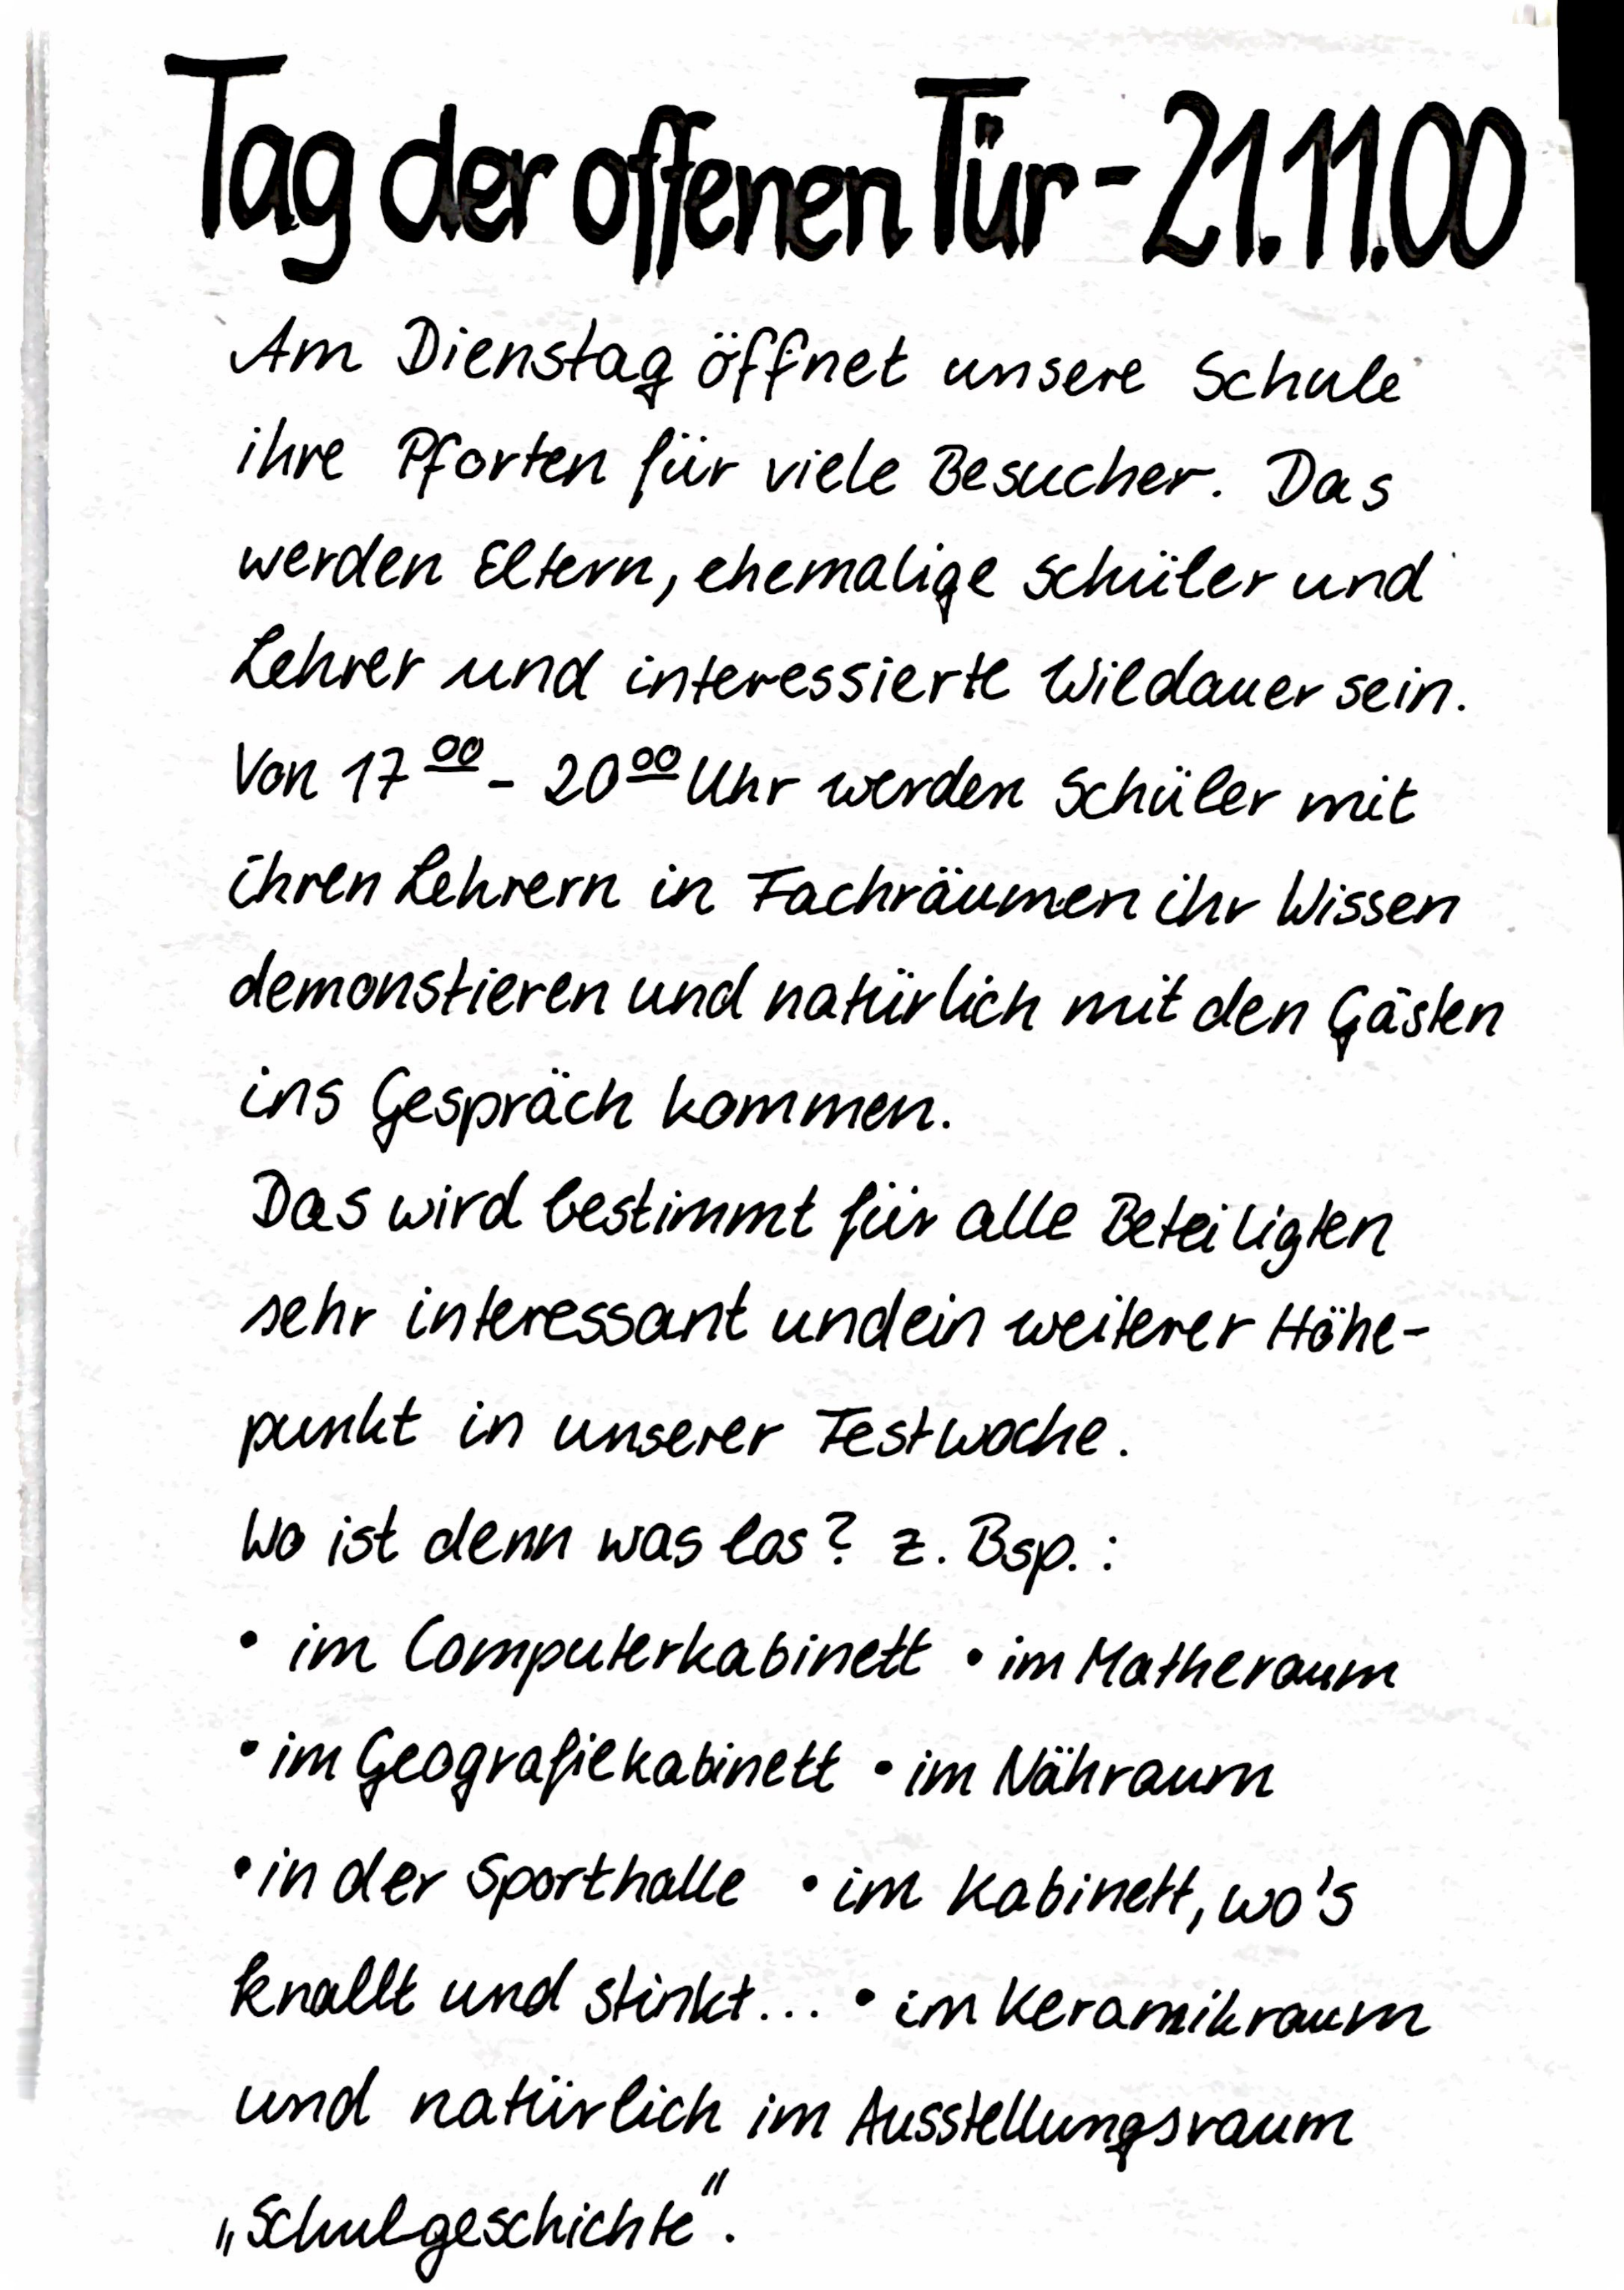 Tag der offenen Tür - 21.11.00
Am Dienstag öffnet unsere Schule
ihre Pforten für viele Besucher. Das
werden Eltern, ehemalige Schüler und
Lehrer und interessierte Wildauer sein.
Von 17⁰⁰ - 20⁰⁰ Uhr werden Schüler mit
ihren Lehrern in Fachräumen ihr Wissen
demonstieren und natürlich mit den Gästen
ins Gespräch kommen.
Das wird bestimmt für alle Beteiligten
sehr interessant und ein weiterer Höhe-
punkt in unserer Festwoche.
Wo ist denn was los? z. Bsp. :
• im Computerkabinett • im Matheraum
• im Geografiekabinett • im Nähraum
• in der Sporthalle • im Kabinett, wo's
knallt und stinkt... • im Keramikraum
und natürlich im Ausstellungsraum
„Schulgeschichte".